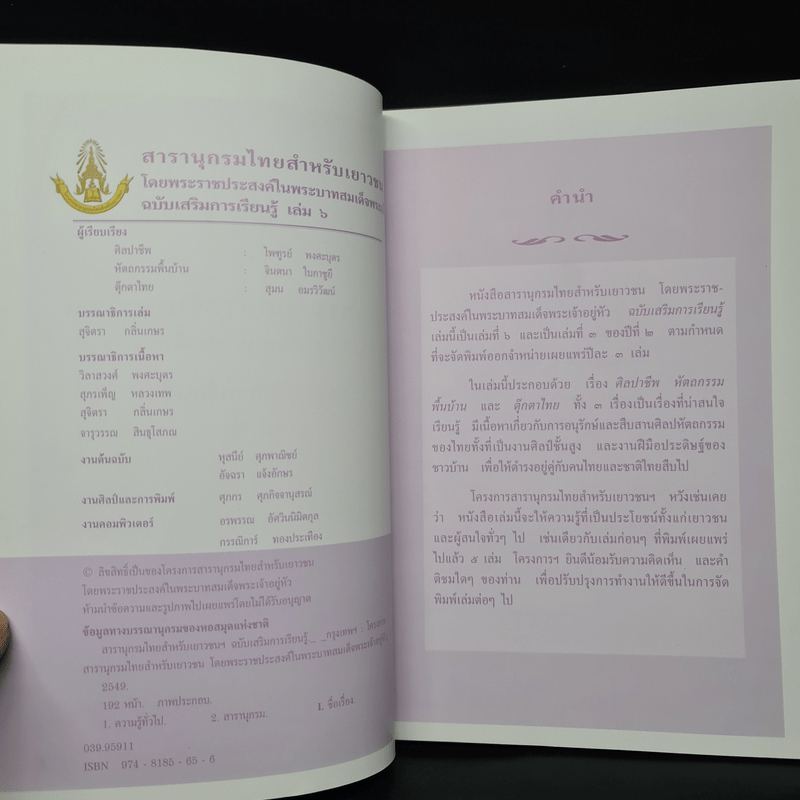 สารานุกรมไทยสำหรับเยาวชน
โดยพระราชประสงค์ในพระบาทสมเด็จพระ
ฉบับเสริมการเรียนรู้ เล่ม ๖
ผู้เรียบเรียง
ศิลปาชีพ : ไพฑูรย์ พงศะบุตร
หัตถกรรมพื้นบ้าน : จินตนา ใบกาซูยี
ตุ๊กตาไทย : สุมน อมรวิวัฒน์
บรรณาธิการเล่ม
สุจิตรา กลิ่นเกษร
บรรณาธิการเนื้อหา
วิลาสวงศ์ พงศะบุตร
สุภรเพ็ญ หลวงเทพ
สุจิตรา กลิ่นเกษร
จารุวรรณ สินธุโสภณ
งานต้นฉบับ หุสนีย์ ศุภพาณิชย์
อัจฉรา แจ้งอักษร
งานศิลป์และการพิมพ์ ศุภกร ศุภกิจจานุสรณ์
งานคอมพิวเตอร์ อรพรรณ อัศวินนิมิตกุล
กรรณิการ์ ทองประเทือง
© ลิขสิทธิ์เป็นของโครงการสารานุกรมไทยสำหรับเยาวชน
โดยพระราชประสงค์ในพระบาทสมเด็จพระเจ้าอยู่หัว
ห้ามนำข้อความและรูปภาพไปเผยแพร่โดยไม่ได้รับอนุญาต
ข้อมูลทางบรรณานุกรมของหอสมุดแห่งชาติ
สารานุกรมไทยสำหรับเยาวชนฯ ฉบับเสริมการเรียนรู้._ _กรุงเทพฯ : โครงการ
สารานุกรมไทยสำหรับเยาวชน โดยพระราชประสงค์ในพระบาทสมเด็จพระเจ้าอยู่หัว,
2549.
192 หน้า. ภาพประกอบ.
1. ความรู้ทั่วไป. 2. สารานุกรม. I. ชื่อเรื่อง.
039.95911
ISBN 974 - 8185 - 65 - 6
คำนำ
หนังสือสารานุกรมไทยสำหรับเยาวชน โดยพระราช-
ประสงค์ในพระบาทสมเด็จพระเจ้าอยู่หัว ฉบับเสริมการเรียนรู้
เล่มนี้เป็นเล่มที่ ๖ และเป็นเล่มที่ ๓ ของปีที่ ๒ ตามกำหนด
ที่จะจัดพิมพ์ออกจำหน่ายเผยแพร่ปีละ ๓ เล่ม
ในเล่มนี้ประกอบด้วย เรื่อง ศิลปาชีพ หัตถกรรม
พื้นบ้าน และ ตุ๊กตาไทย ทั้ง ๓ เรื่องเป็นเรื่องที่น่าสนใจ
เรียนรู้ มีเนื้อหาเกี่ยวกับการอนุรักษ์และสืบสานศิลปหัตถกรรม
ของไทยทั้งที่เป็นงานศิลป์ชั้นสูง และงานฝีมือประดิษฐ์ของ
ชาวบ้าน เพื่อให้ดำรงอยู่คู่กับคนไทยและชาติไทยสืบไป
โครงการสารานุกรมไทยสำหรับเยาวชนฯ หวังเช่นเคย
ว่า หนังสือเล่มนี้จะให้ความรู้ที่เป็นประโยชน์ทั้งแก่เยาวชน
และผู้สนใจทั่วๆ ไป เช่นเดียวกับเล่มก่อนๆ ที่พิมพ์เผยแพร่
ไปแล้ว ๕ เล่ม โครงการฯ ยินดีน้อมรับความคิดเห็น และคำ
ติชมใดๆ ของท่าน เพื่อปรับปรุงการทำงานให้ดีขึ้นในการจัด
พิมพ์เล่มต่อๆ ไป